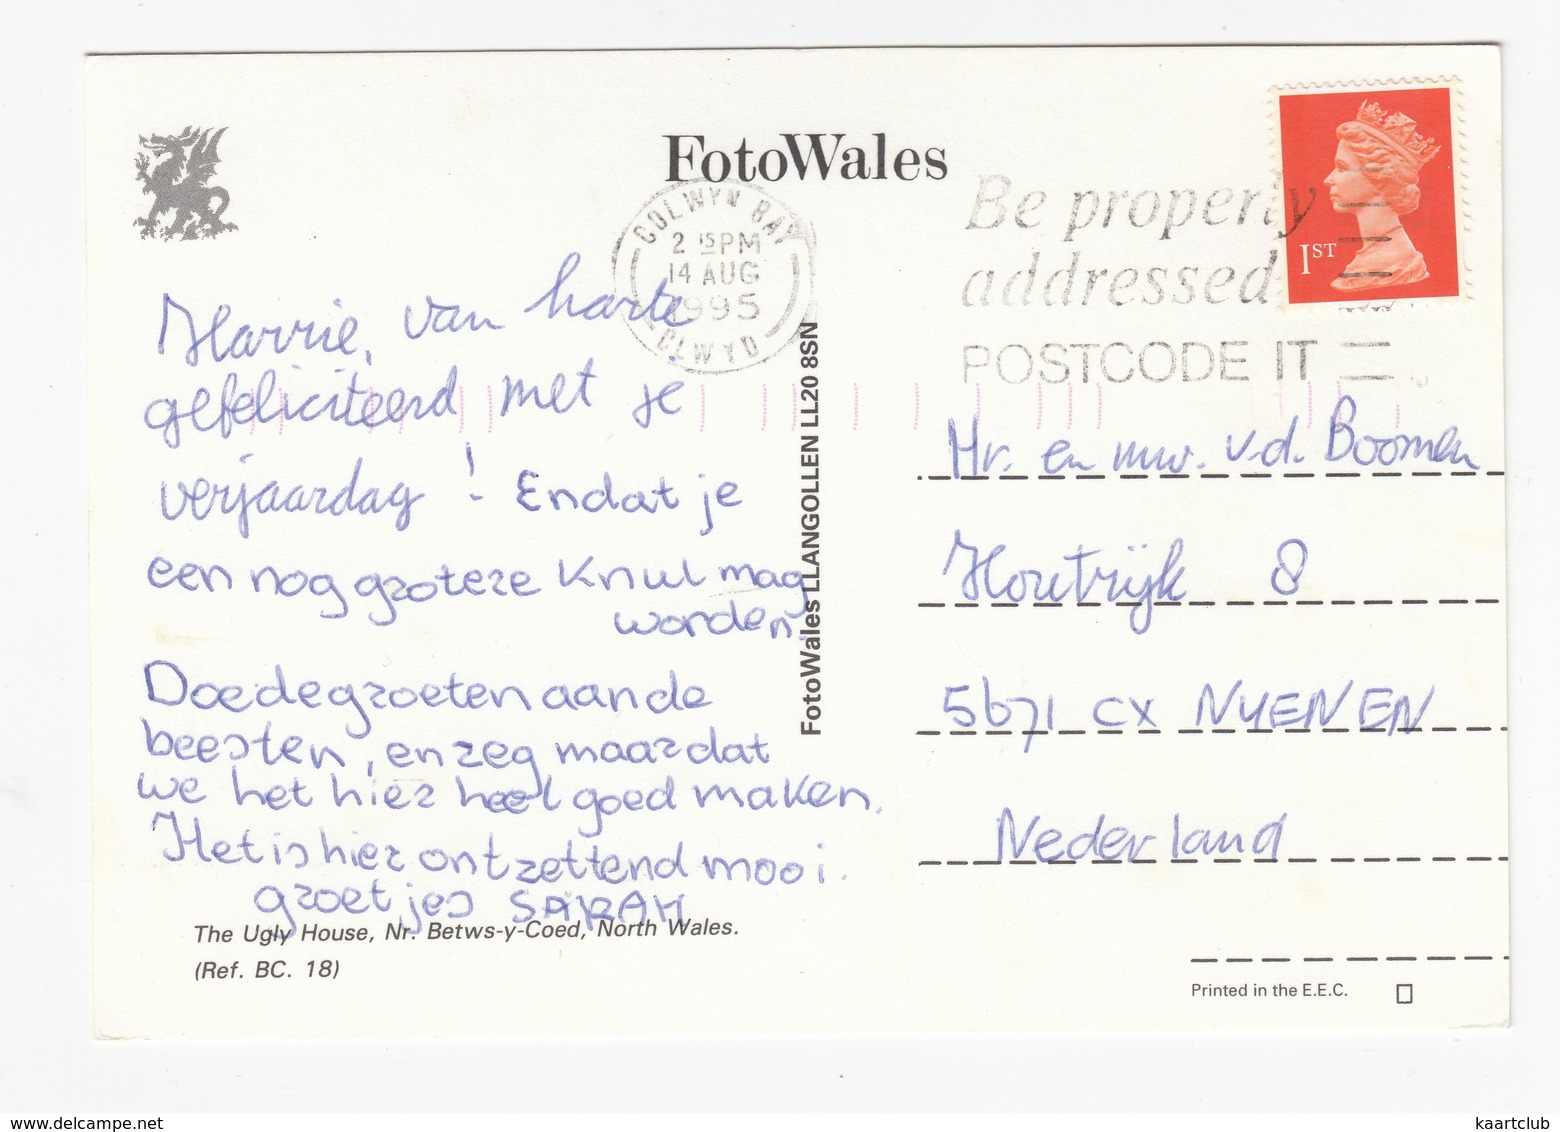 FotoWales
COLWYN BAY
2 15 PM
14 AUG
1995
CLWYD
Be properly
addressed
POSTCODE IT
1ST
Harrie, van harte
gefeliciteerd met je
verjaardag! Endat je
een nog grotere Knul mag
worden.
Doe de groeten aan de
beesten, en zeg maar dat
we het hier heel goed maken.
Het is hier ontzettend mooi.
groetjes SARAH
The Ugly House, Nr. Betws-y-Coed, North Wales.
(Ref. BC. 18)
FotoWales LLANGOLLEN LL20 8SN
Mr. en mw. v.d. Boomen
Houtrijk 8
5671 CX NUENEN
Nederland
Printed in the E.E.C.
kaartclub